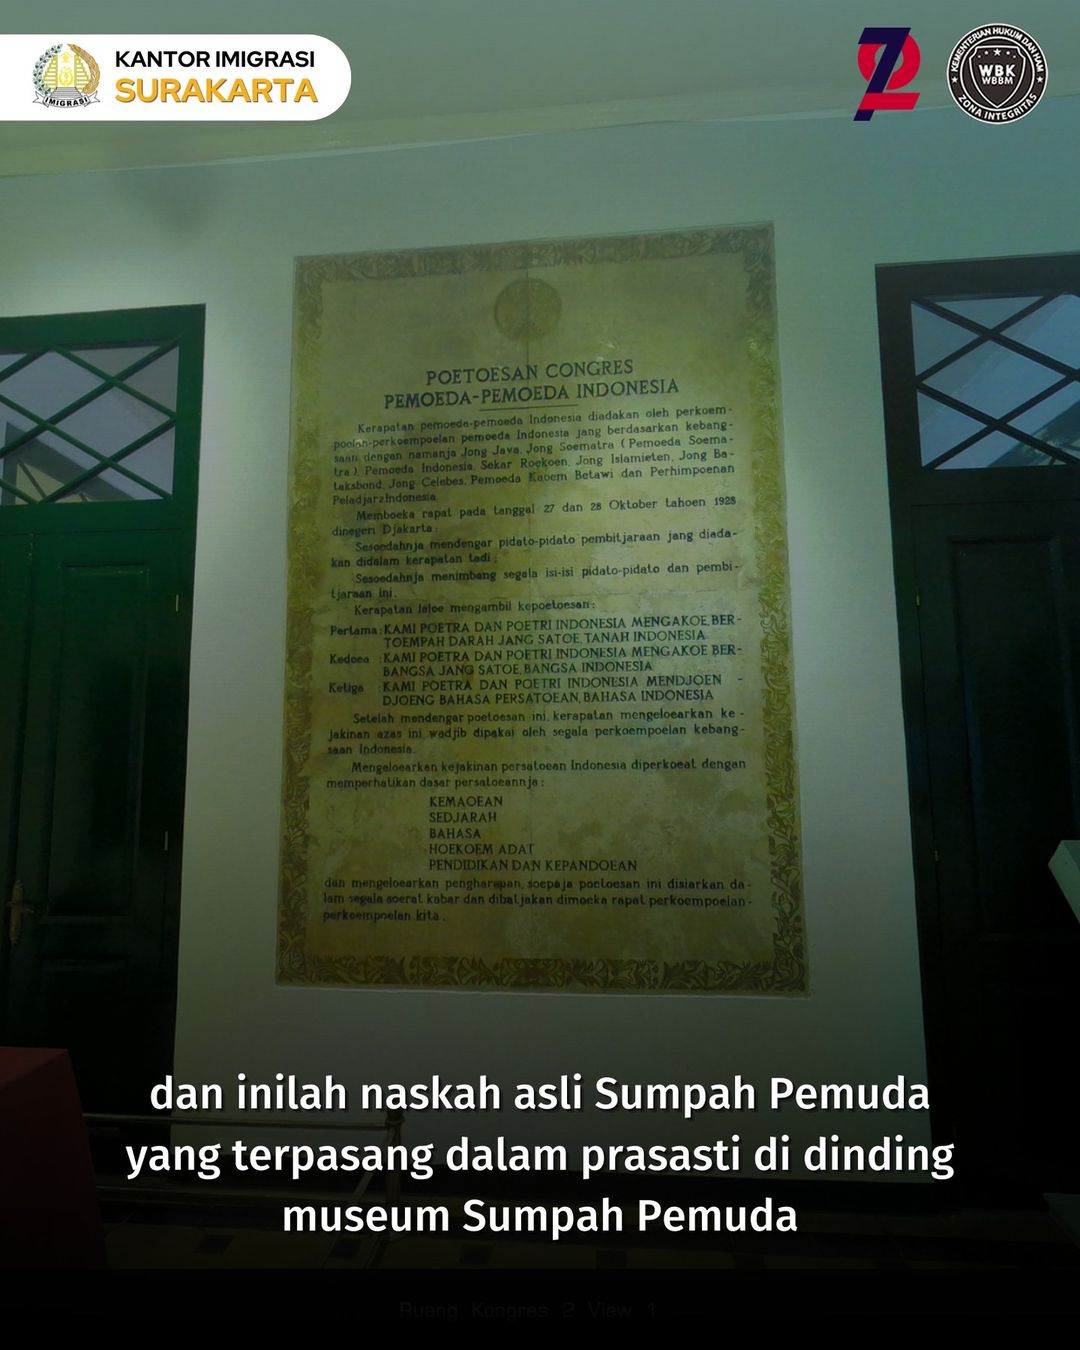 KANTOR IMIGRASI
SURAKARTA
IMIGRASI
72
KEMENTERIAN HUKUM DAN HAM
WBK
WBBM
ZONA INTEGRITAS
POETOESAN CONGRES
PEMOEDA-PEMOEDA INDONESIA
Kerapatan pemoeda-pemoeda Indonesia diadakan oleh perkoem-
poelan-perkoempoelan pemoeda Indonesia jang berdasarkan kebang-
saan dengan namanja Jong Java, Jong Soematra (Pemoeda Soema-
tra), Pemoeda Indonesia, Sekar Roekoen, Jong Islamieten, Jong Ba-
taksbond, Jong Celebes, Pemoeda Kaoem Betawi dan Perhimpoenan
Peladjar2Indonesia.
Memboeka rapat pada tanggal 27 dan 28 Oktober tahoen 1928
dinegeri Djakarta:
Sesoedahnja mendengar pidato-pidato pembitjaraan jang diada-
kan didalam kerapatan tadi;
Sesoedahnja menimbang segala isi-isi pidato-pidato dan pembi-
tjaraan ini.
Kerapatan laloe mengambil kepoetoesan:
Pertama: KAMI POETRA DAN POETRI INDONESIA MENGAKOE BER-
TOEMPAH DARAH JANG SATOE, TANAH INDONESIA
Kedoea : KAMI POETRA DAN POETRI INDONESIA MENGAKOE BER-
BANGSA JANG SATOE, BANGSA INDONESIA
Ketiga : KAMI POETRA DAN POETRI INDONESIA MENDJOEN -
DJOENG BAHASA PERSATOEAN, BAHASA INDONESIA
Setelah mendengar poetoesan ini, kerapatan mengeloearkan ke -
jakinan azas ini wadjib dipakai oleh segala perkoempoelan kebang-
saan Indonesia.
Mengeloearkan kejakinan persatoean Indonesia diperkoeat dengan
memperhatikan dasar persatoeannja:
KEMAOEAN
SEDJARAH
BAHASA
HOEKOEM ADAT
PENDIDIKAN DAN KEPANDOEAN
dan mengeloearkan pengharapan, soepaja poetoesan ini disiarkan da-
lam segala soerat kabar dan dibatjakan dimoeka rapat perkoempoelan-
perkoempoelan kita.
dan inilah naskah asli Sumpah Pemuda
yang terpasang dalam prasasti di dinding
museum Sumpah Pemuda
Ruang Kongres 2 View 1